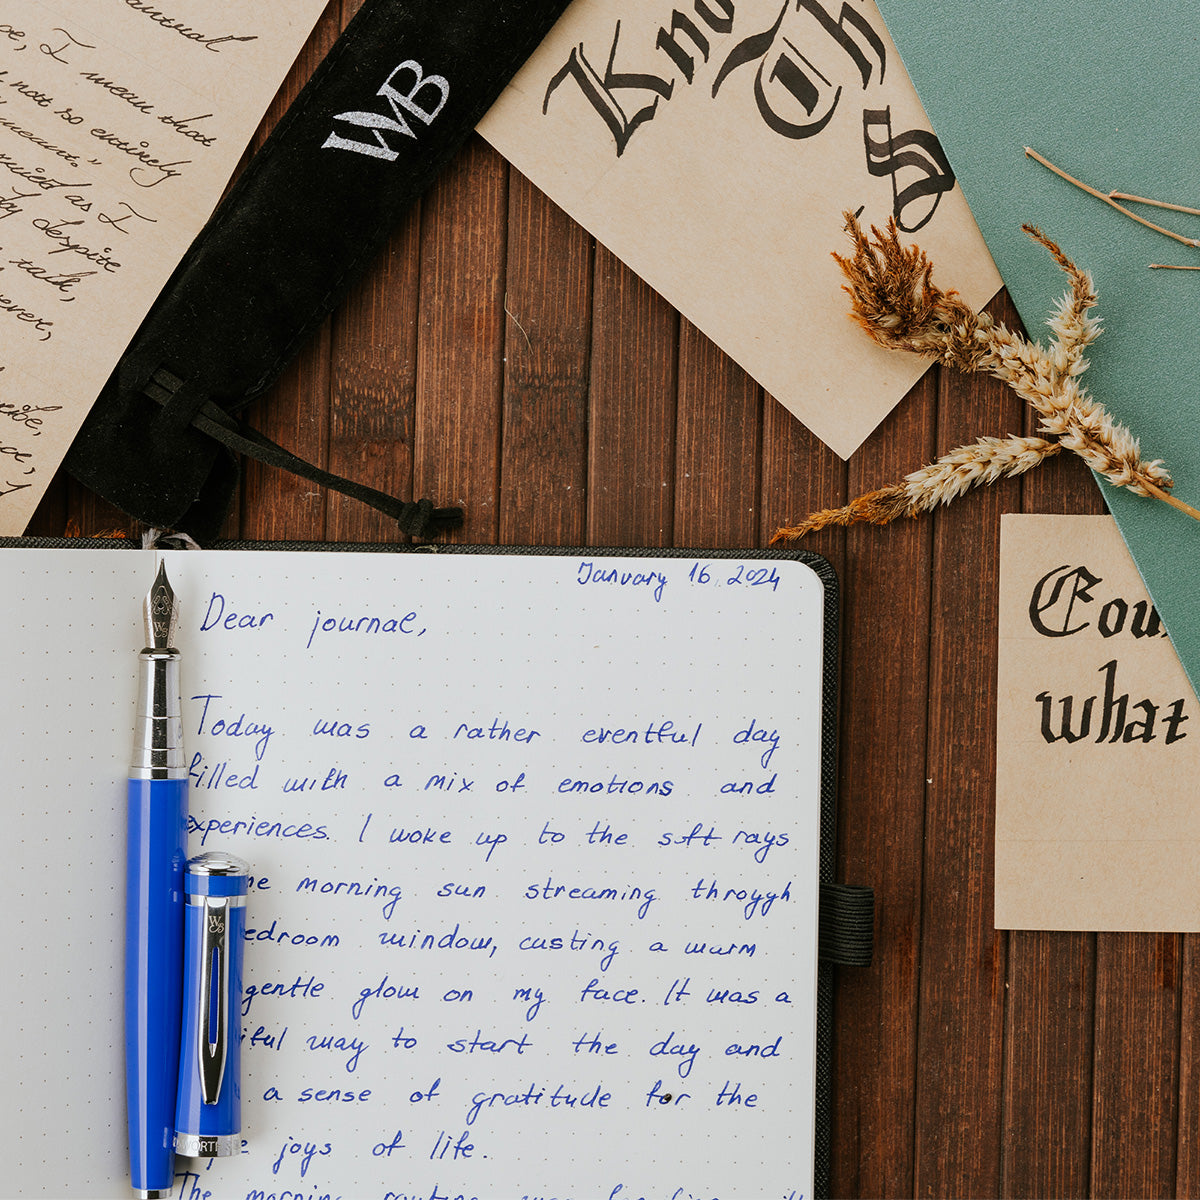 I mean that
not so entirely
meant."
as I
despite
talk,
WB
Kno
Th
S
January 16, 2024
Dear journal,
Today was a rather eventful day
filled with a mix of emotions and
experiences. I woke up to the soft rays
morning sun streaming throygh
window, casting a warm
gentle glow on my face. It was a
way to start the day and
a sense of gratitude for the
joys of life.
The morning routine was
Cou
what